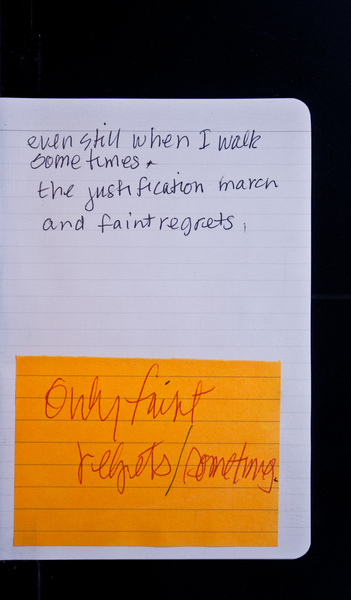 even still when I walk
sometimes
the justification march
and faint regrets,
Only faint
regrets/something.